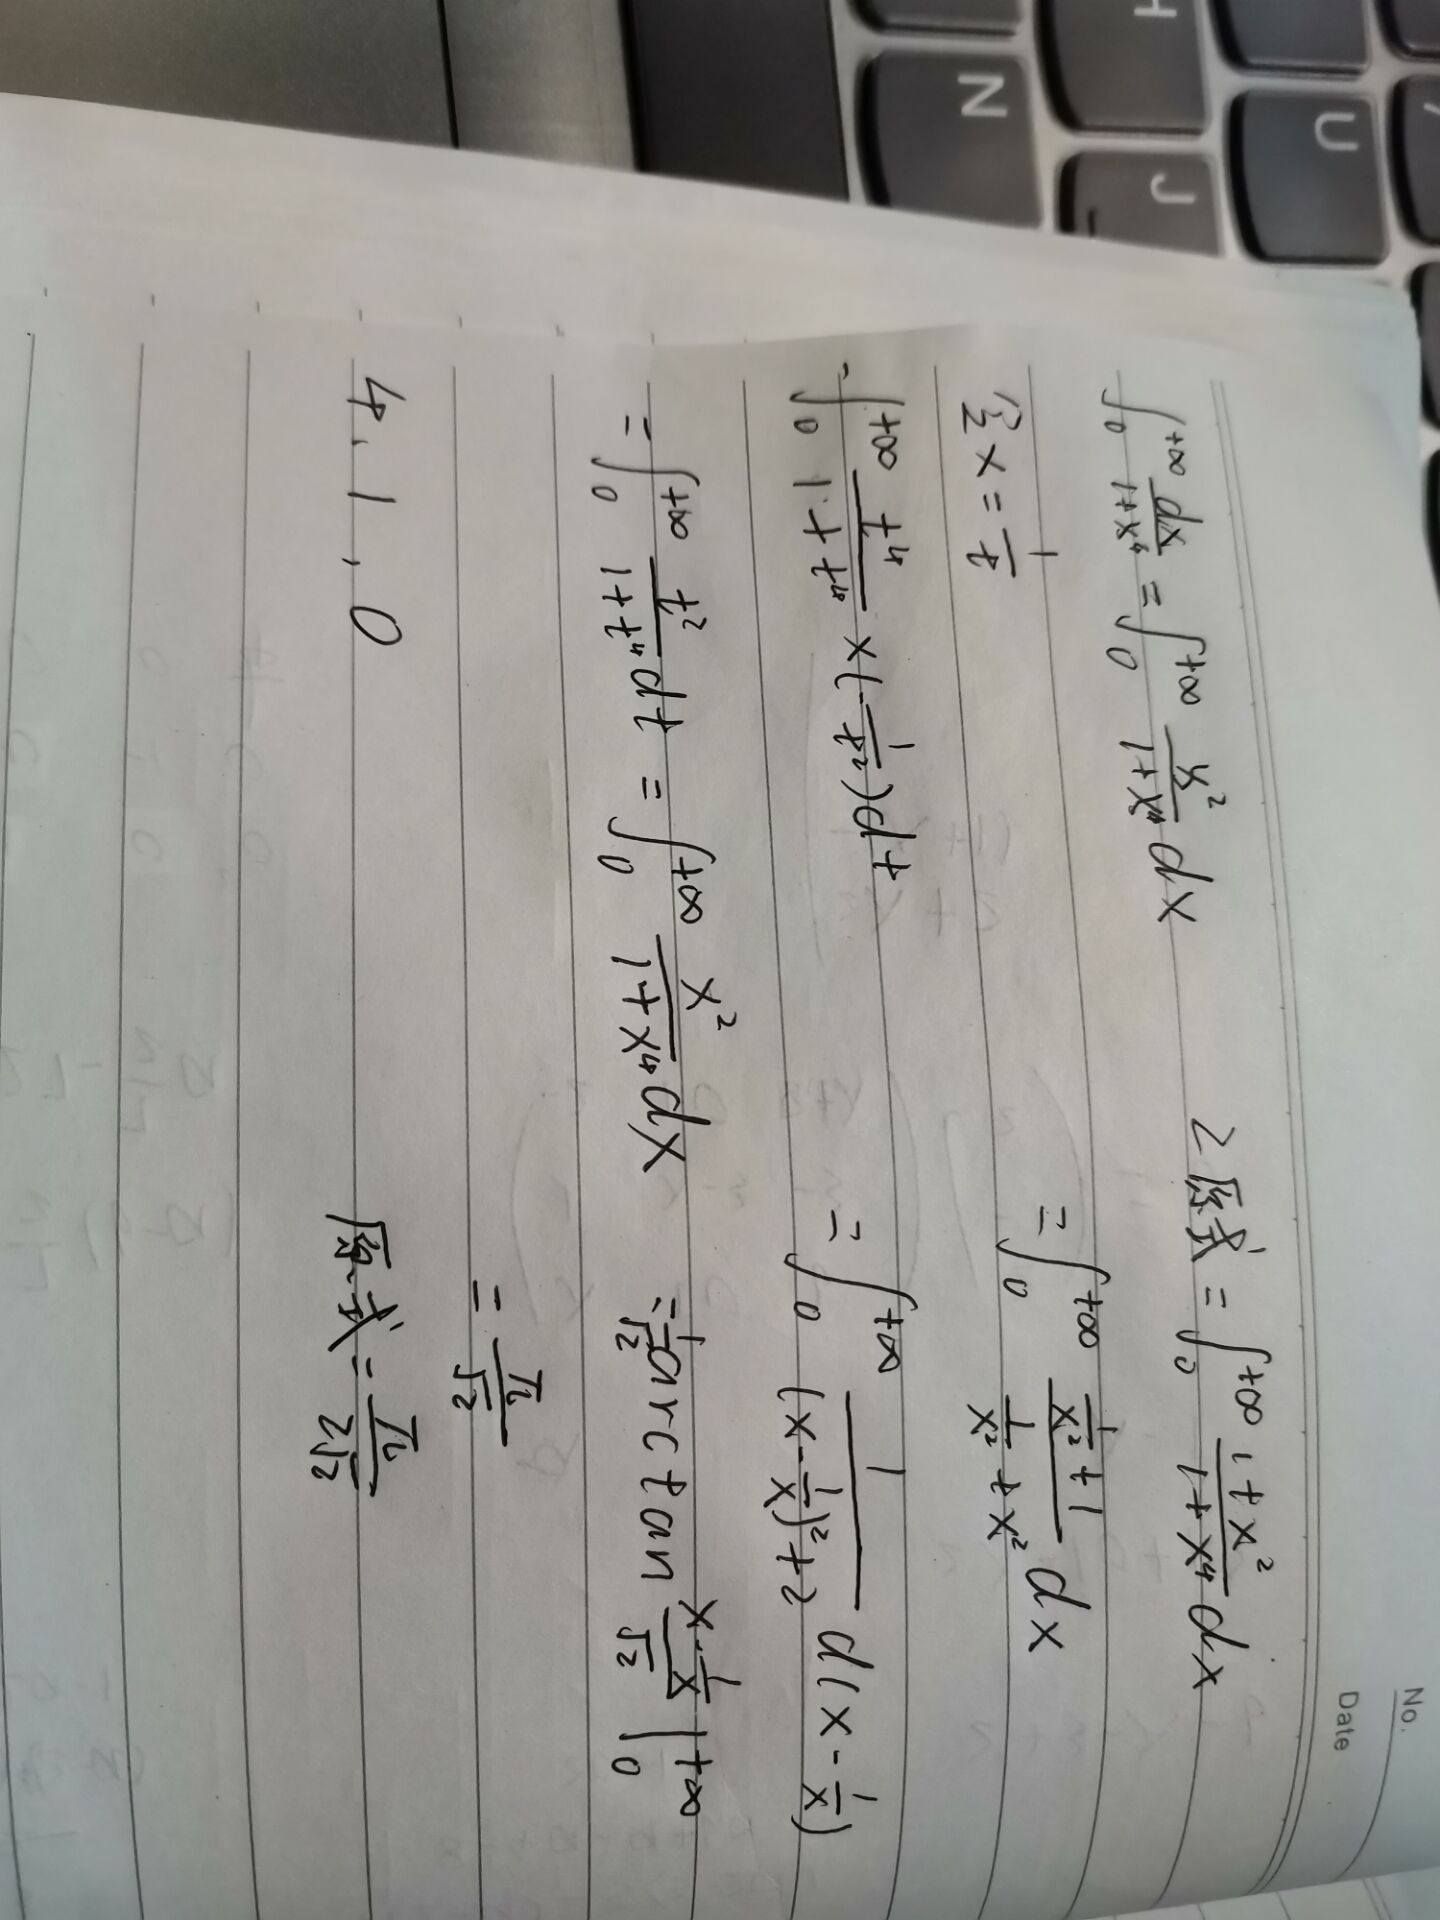 No.
Date
∫₀^{+∞} dx/(1+x⁴) = ∫₀^{+∞} x²/(1+x⁴) dx
设 x = 1/t
-∫₀^{+∞} t⁴/(1+t⁴) × (-1/t²) dt
= ∫₀^{+∞} t²/(1+t⁴) dt = ∫₀^{+∞} x²/(1+x⁴) dx
4、1、0
2原式 = ∫₀^{+∞} (1+x²)/(1+x⁴) dx
= ∫₀^{+∞} (1/x²+1)/(1/x²+x²) dx
= ∫₀^{+∞} 1/((x-1/x)²+2) d(x-1/x)
= 1/√2 arctan (x-1/x)/√2 |₀^{+∞}
= π/√2
原式 = π/(2√2)
H
N
U
J